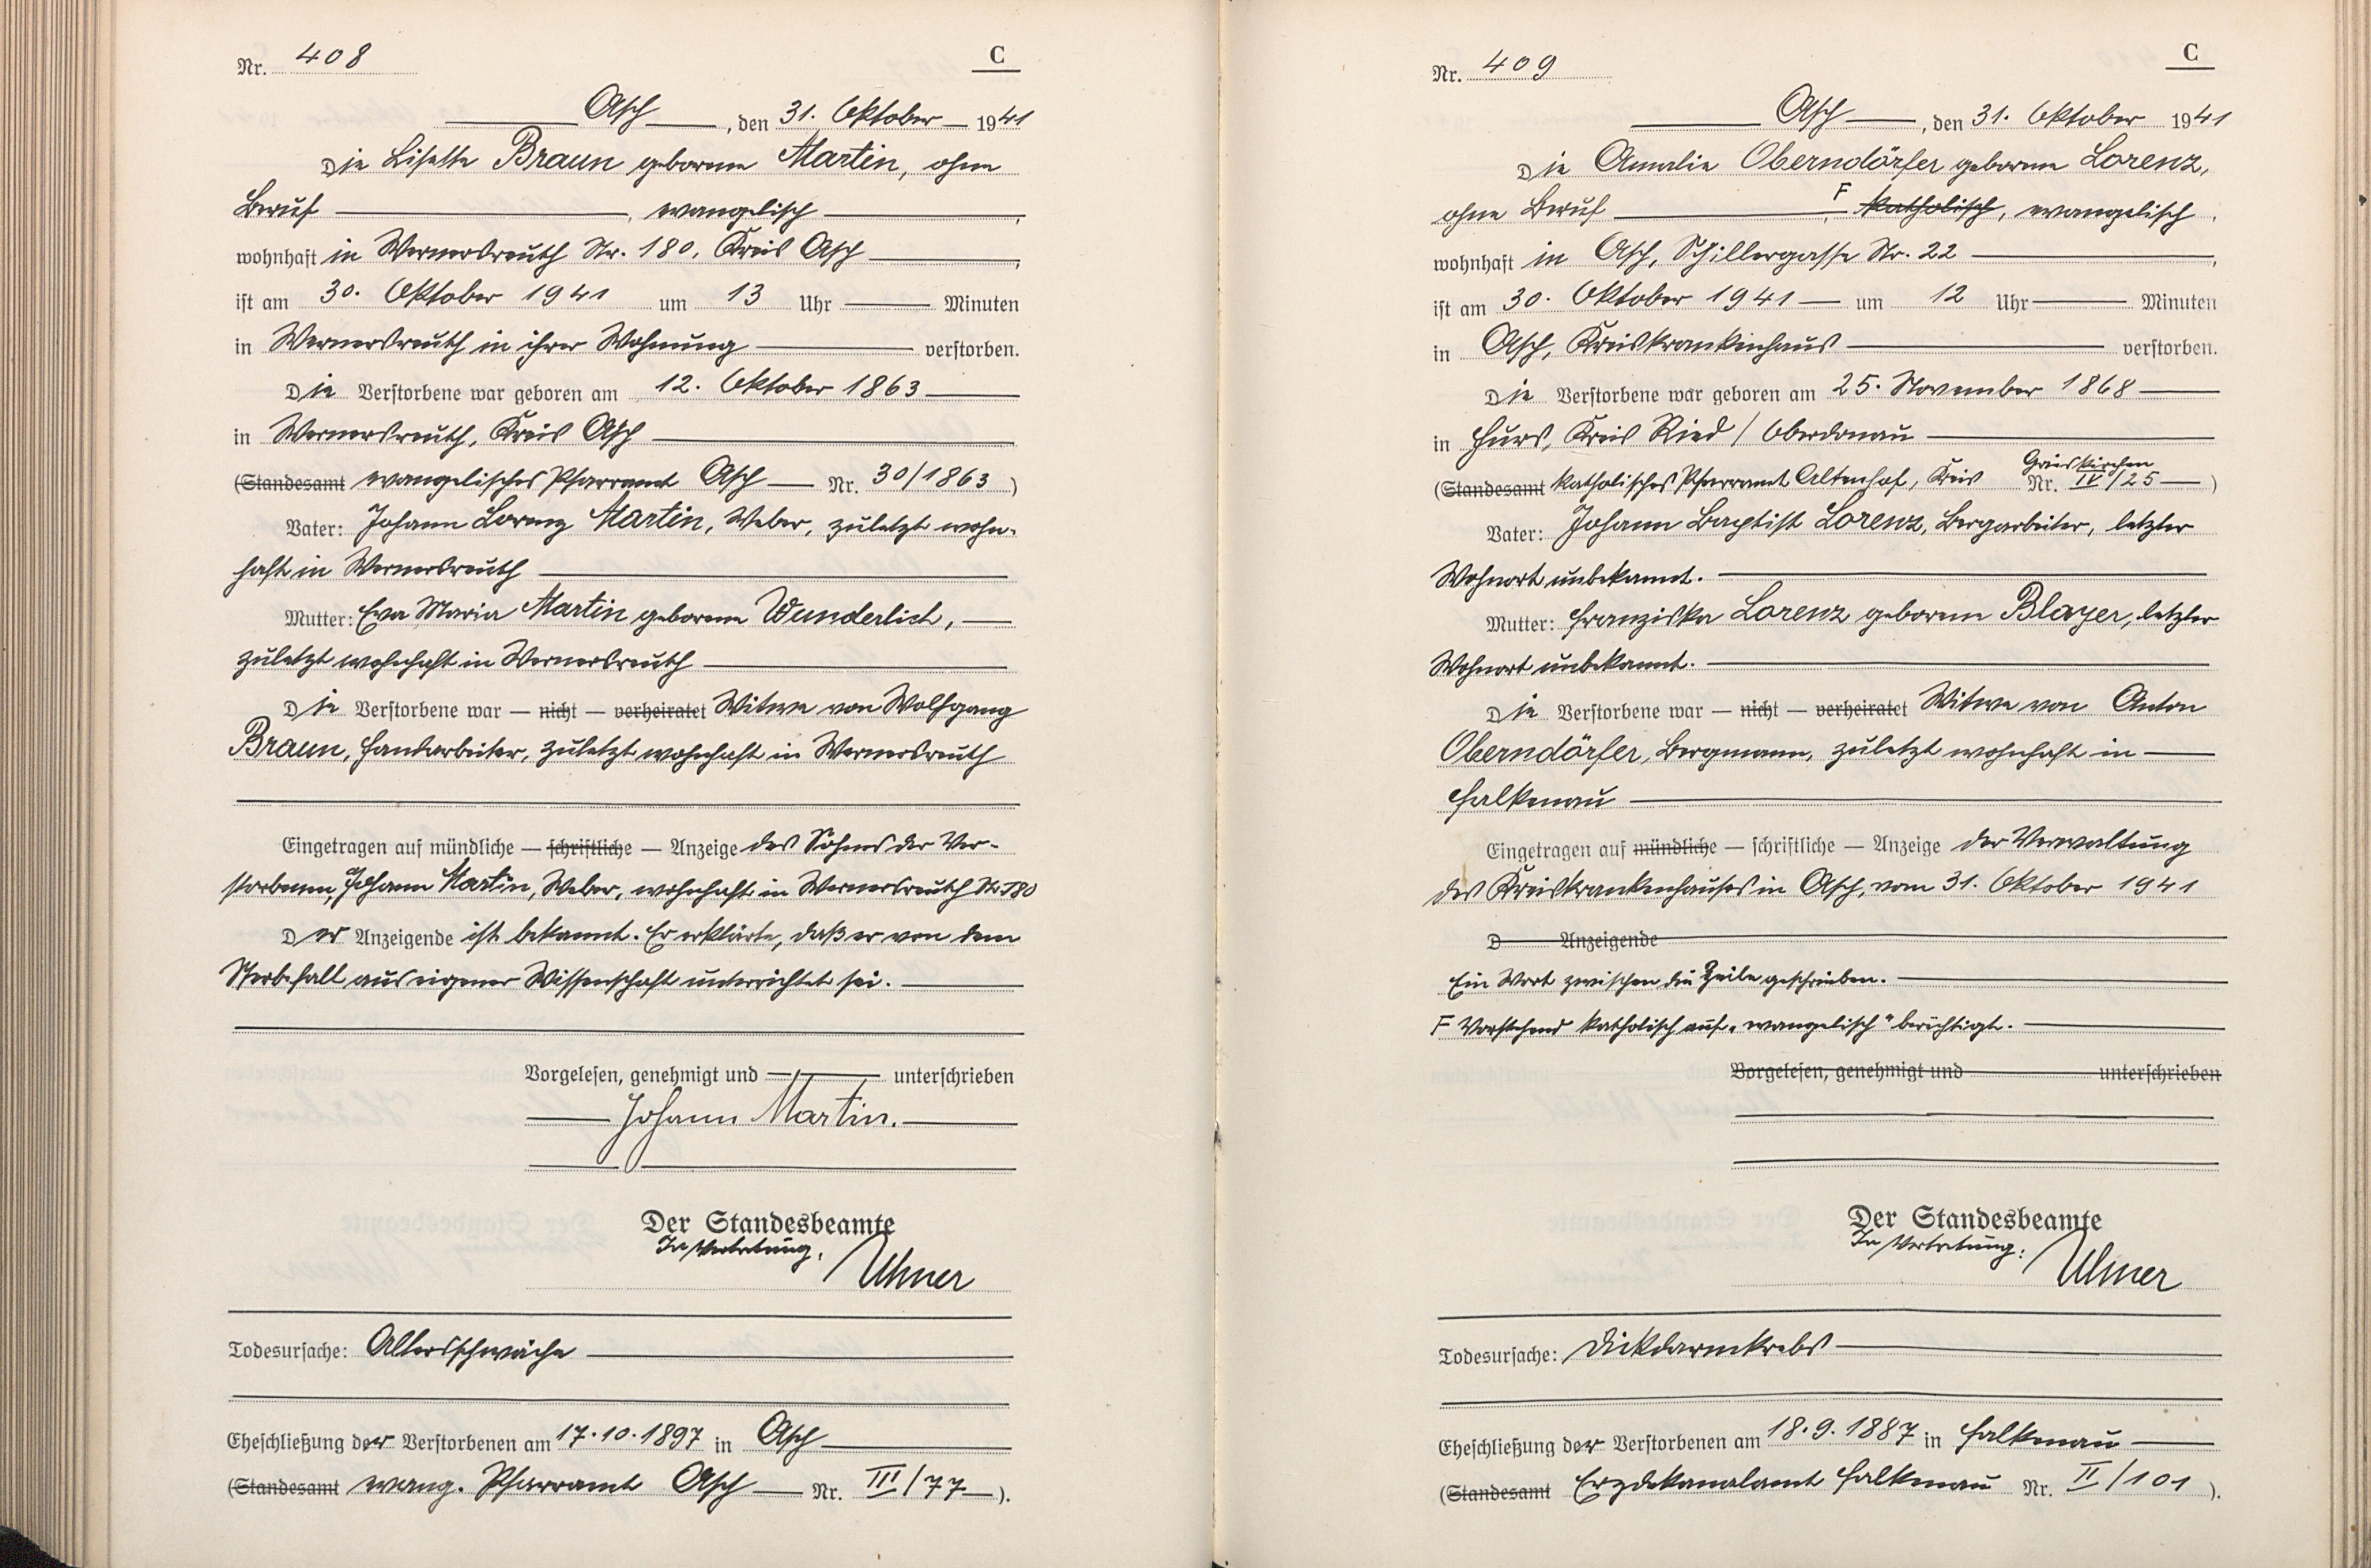 Nr. 408
C
Asch, den 31. Oktober 1941
Die Lisette Braun geborene Martin, ohne
Beruf, evangelisch,
wohnhaft in Wernersreuth Nr. 180, Kreis Asch,
ist am 30. Oktober 1941 um 13 Uhr Minuten
in Wernersreuth in ihrer Wohnung verstorben.
Die Verstorbene war geboren am 12. Oktober 1863
in Wernersreuth, Kreis Asch
(Standesamt evangelisches Pfarramt Asch Nr. 30/1863)
Vater: Johann Lorenz Martin, Weber, zuletzt wohn-
haft in Wernersreuth
Mutter: Eva Maria Martin geborene Wunderlich,
zuletzt wohnhaft in Wernersreuth
Die Verstorbene war — nicht — verheiratet Witwe von Wolfgang
Braun, Handarbeiter, zuletzt wohnhaft in Wernersreuth
Eingetragen auf mündliche — schriftliche — Anzeige des Sohnes der Ver-
storbenen, Johann Martin, Weber, wohnhaft in Wernersreuth Nr. 180
Der Anzeigende ist bekannt. Er erklärte, daß er von dem
Sterbefall aus eigener Wissenschaft unterrichtet sei.
Vorgelesen, genehmigt und unterschrieben
Johann Martin.
Der Standesbeamte
In Vertretung:
Ulmer
Todesursache: Altersschwäche
Eheschließung der Verstorbenen am 17.10.1897 in Asch
(Standesamt evang. Pfarramt Asch Nr. III/77).
Nr. 409
C
Asch, den 31. Oktober 1941
Die Amalie Oberndörfer geborene Lorenz,
ohne Beruf, F katholisch, evangelisch,
wohnhaft in Asch, Schillergasse Nr. 22,
ist am 30. Oktober 1941 um 12 Uhr Minuten
in Asch, Kreiskrankenhaus verstorben.
Die Verstorbene war geboren am 25. November 1868
in Kreis Ried / Oberdonau
Grieskirchen
(Standesamt katholisches Pfarramt Altenhof, Kreis Nr. IV/25)
Vater: Johann Baptist Lorenz, Bergarbeiter, letzter
Wohnort unbekannt.
Mutter: Franziska Lorenz geborene Blayer, letzter
Wohnort unbekannt.
Die Verstorbene war — nicht — verheiratet Witwe von Anton
Oberndörfer, Bergmann, zuletzt wohnhaft in
Falkenau
Eingetragen auf mündliche — schriftliche — Anzeige der Verwaltung
des Kreiskrankenhauses in Asch, vom 31. Oktober 1941
D Anzeigende
Ein Wort zwischen die Zeile geschrieben.
F Vorstehend katholisch auf „evangelisch“ berichtigt.
Vorgelesen, genehmigt und unterschrieben
Der Standesbeamte
In Vertretung:
Ulmer
Todesursache: Dickdarmkrebs
Eheschließung der Verstorbenen am 18.9.1887 in Falkenau
(Standesamt Erzdekanalamt Falkenau Nr. II/101).